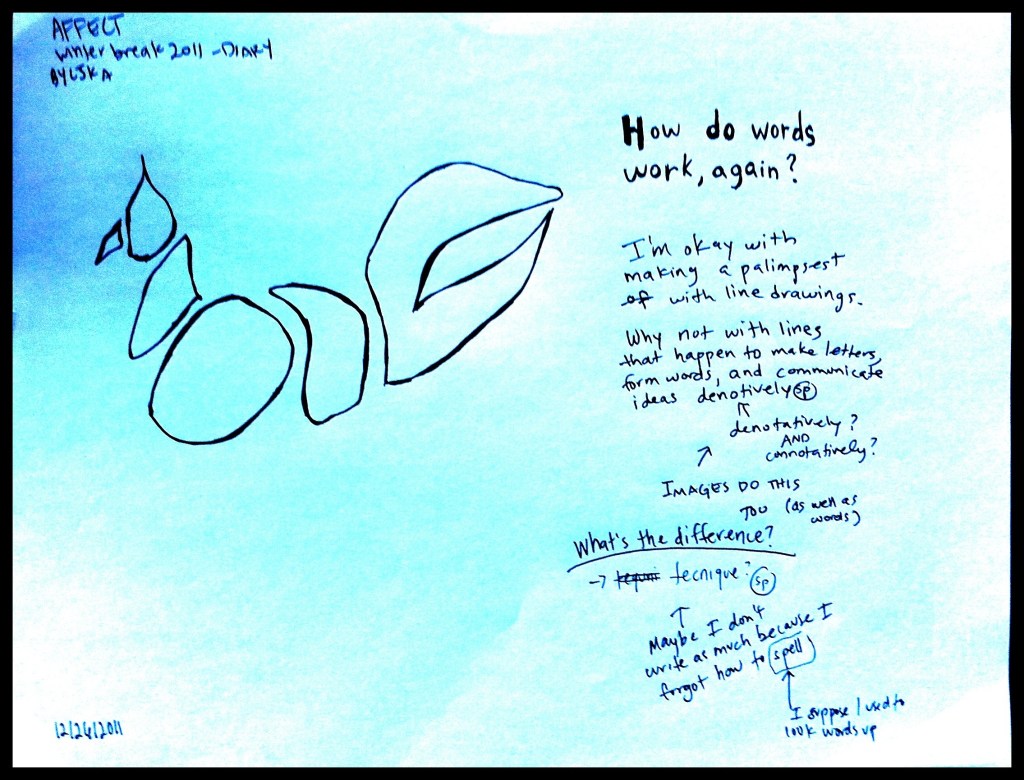 AFFECT
winter break 2011 - DIARY
BY LSKA
How do words
work, again?
I'm okay with
making a palimpsest
of with line drawings.
Why not with lines
that happen to make letters,
form words, and communicate
ideas denotively sp
denotatively?
AND
connotatively?
IMAGES DO THIS
TOO (as well as
words)
What's the difference?
→ tecnique? sp
Maybe I don't
write as much because I
forgot how to spell
I suppose I used to
look words up
12/26/2011